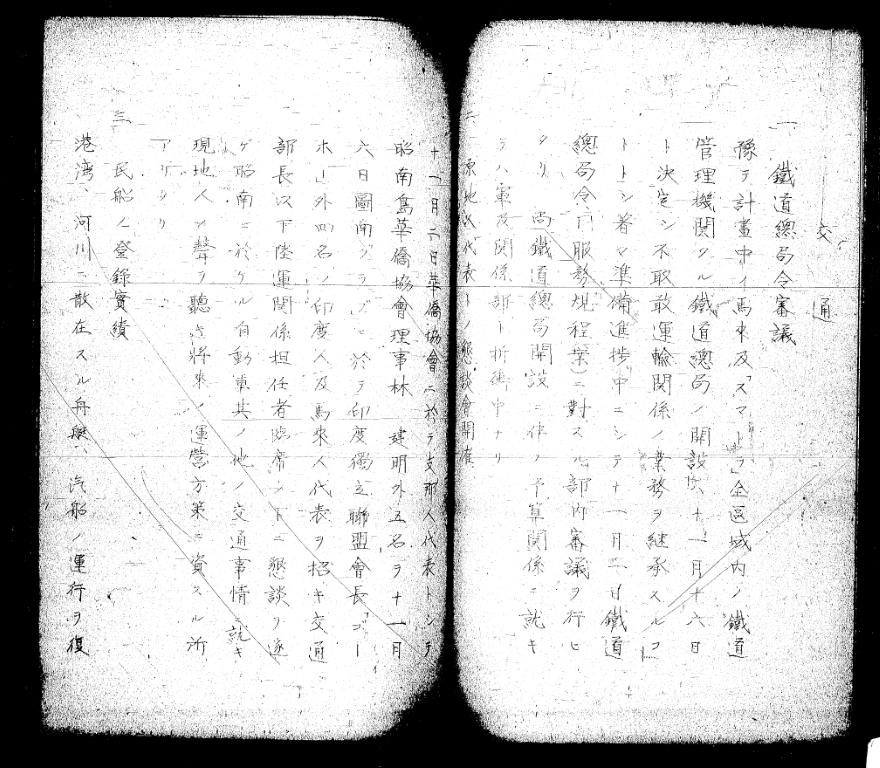 交通
一 鐵道總局令審議
豫テ計畫中ノ馬來及「スマトラ」全區域内ノ鐵道
管理機關タル鐵道總局ノ開設次十一月十六日
ト決定シ不取敢運輸關係ノ業務ヲ継承スルコ
トトシ着々準備進捗中ニシテ十一月二日鐵道
總局令(服務規程案)ニ對スル部内審議ヲ行ヒ
タリ 尚鐵道總局開設ニ伴フ予算関係ニ就キ
テハ軍及関係部ト折衝中ナリ
二 原地民代表トノ懇談會開催
十一月二日華僑協會ニ於テ支那人代表トシテ
昭南島華僑協會理事林 建明外五名ヲ十一月
六日圖南クラブニ於テ印度獨立聯盟會長「ゴー
ホ」外四名ノ印度人及馬來人代表ヲ招キ交通
部長以下陸運関係担任者臨席ノ下ニ懇談ヲ遂
ゲ昭南ニ於ケル自動車其ノ他ノ交通事情ニ就キ
現地人ノ聲ヲ聽キ將來ノ運營方策ニ資スル所
アリタリ
三 民船ノ登錄實績
港湾、河川ニ散在スル舟艇、汽船ノ運行ヲ復